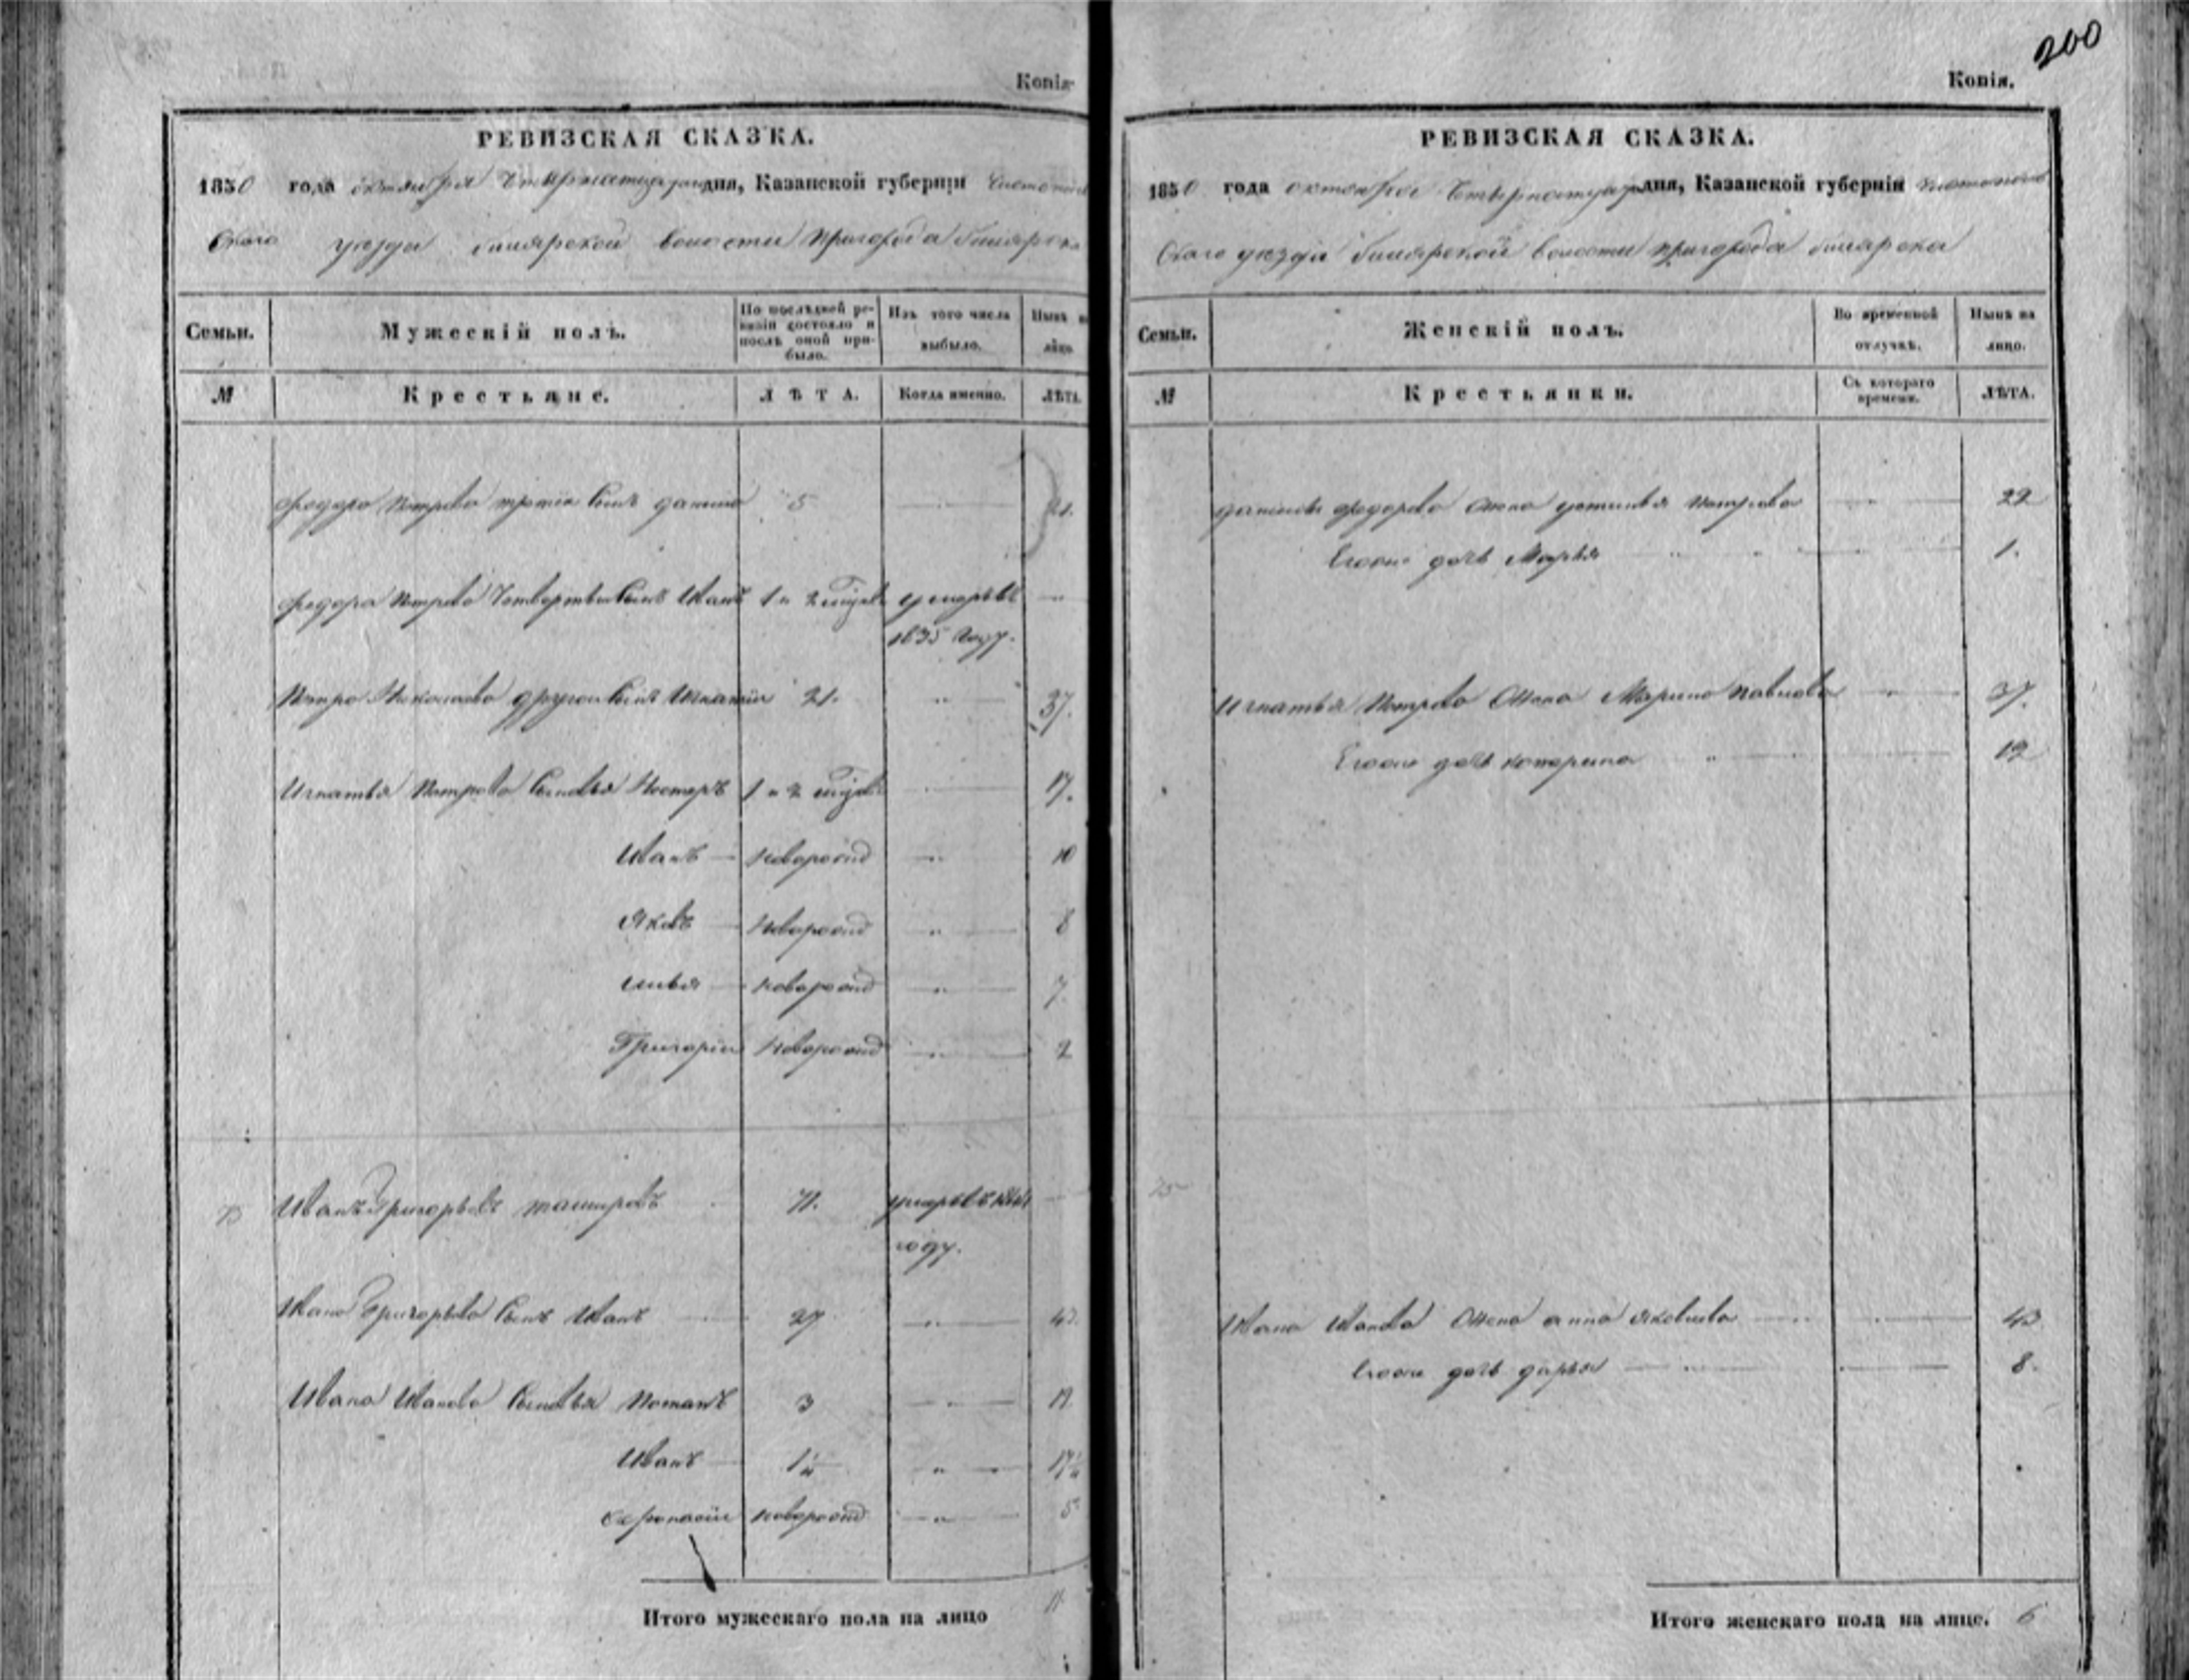 Копія
РЕВИЗСКАЯ СКАЗКА.
1850 года октября четырнатцатаго дня, Казанской губерніи Чистополь
скаго уезда билярской волости пригорода билярска
Семьи.
Мужескій полъ.
По послѣдней ре-
визіи состояло и
послѣ оной при-
было.
Изъ того числа
выбыло.
Нынѣ на
лицо
№
Крестьяне.
ЛѢТА.
Когда именно.
ЛѢТА
федора Петрова третій сынъ данило 5 21.
федора Петрова четвертый сынъ Иванъ 1 и 2 умеръ въ
1835 году.
Петра Николаева другой сынъ Игнатій 21. 37.
Игнатья Петрова сыновья Нестеръ 1 и 2 17.
Иванъ новорожд 10
Яковъ новорожд 8
илья новорожд 7
Григорій новорожд 2
75 Иванъ Григорьевъ 71. умеръ въ
году.
Ивана Григорьева сынъ Иванъ 27 43.
Ивана Иванова сыновья Потапъ 3 19
Иванъ 1 17
новорожд 5
Итого мужескаго пола на лицо 11
200
Копія.
РЕВИЗСКАЯ СКАЗКА.
1850 года октября четырнатцатаго дня, Казанской губерніи чистополь
скаго уезда билярской волости пригорода билярска
Семьи.
Женскій полъ.
Во временной
отлучкѣ.
Нынѣ на
лицо.
№
Крестьянки.
Съ котораго
времени.
ЛѢТА.
данилы федорова жена устинья Петрова 22
Егоже дочь Марья 1.
Игнатья Петрова жена Марина Павлова 37.
Егоже дочь катерина 12
75
Ивана Иванова жена анна яковлева 43
Егоже дочь дарья 8.
Итого женскаго пола на лице. 6